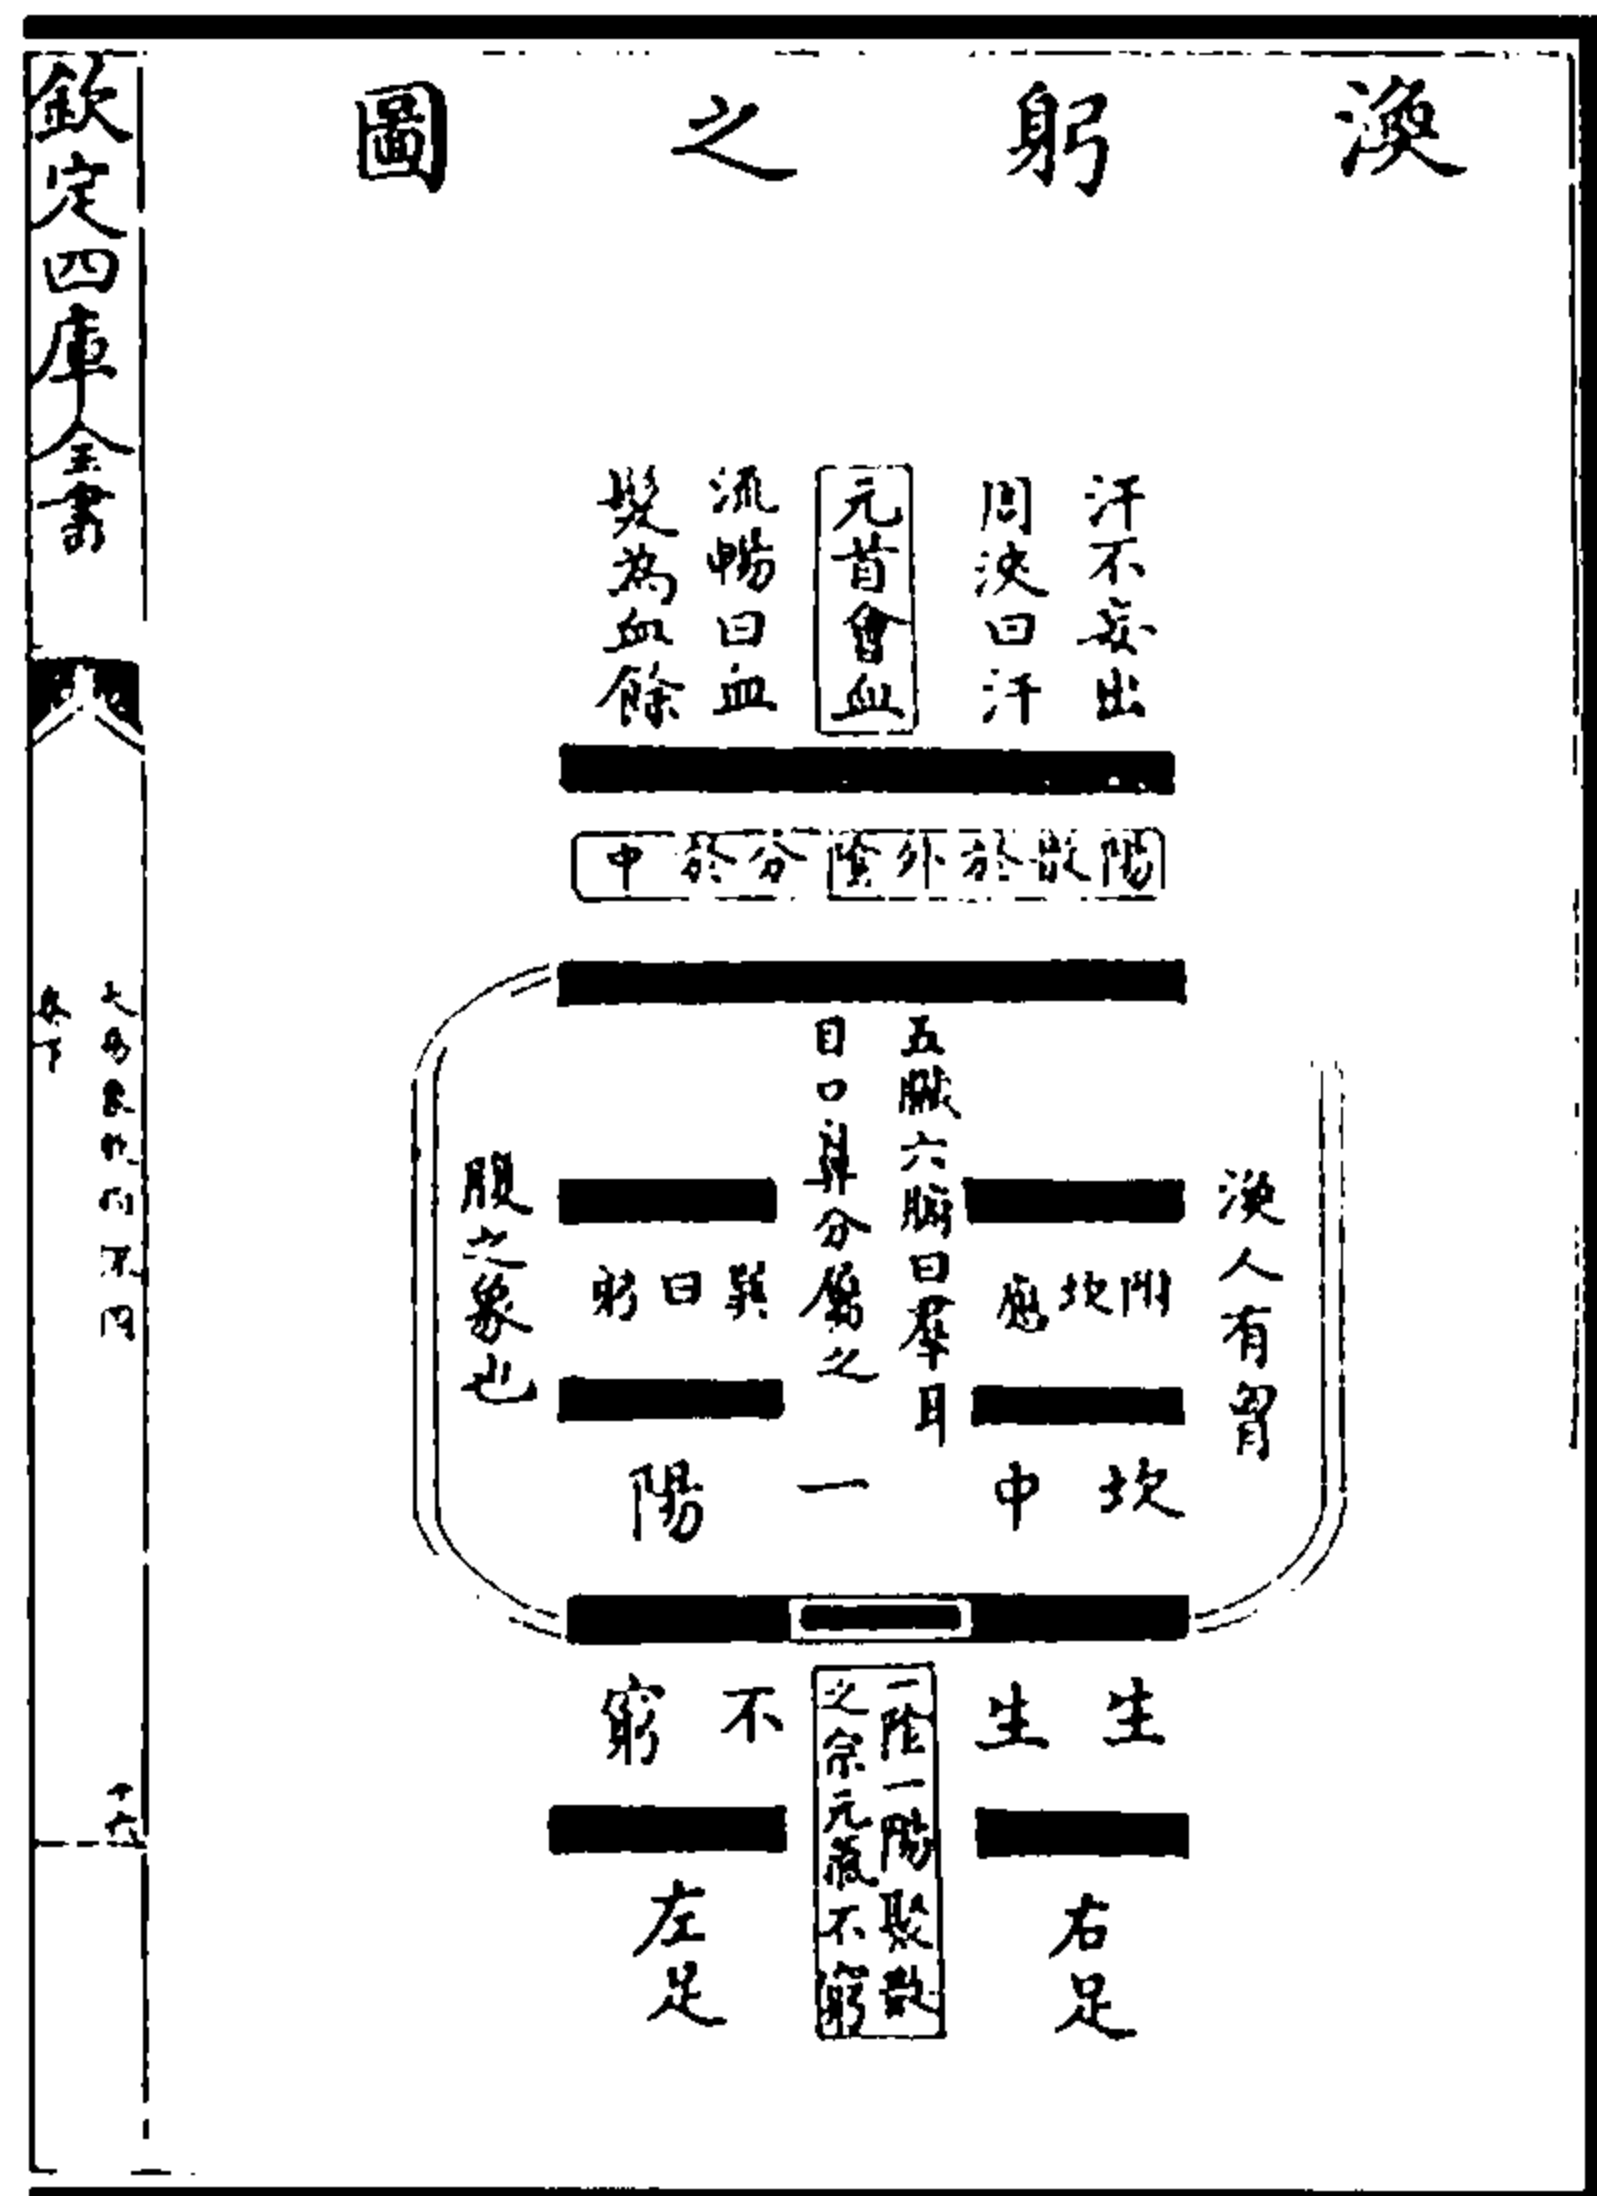 渙躬之圖
汗不妄出
周浹曰汗
元首會血
流暢曰血
髮為血餘
陽散於外陰分於中
五臟六腑曰羣耳
目口鼻分屬之
渙人有胷
腹之象也
開坎應
巽曰躬
坎中一陽
生生不窮
一陰一陽聚散
之宗元氣不窮
右足
左足
欽定四庫全書
大易象數鈎深圖
卷下
十六